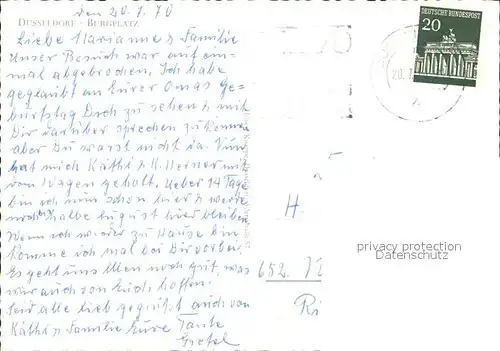 den 20.7.70
DÜSSELDORF - BURGPLATZ
Liebe Marianne & Familie
Unser Besuch war auf ein-
mal abgebrochen. Ich habe
geglaubt an Eurer Omas Ge-
burtstag Dich zu sehen & mit
Dir darüber sprechen zu können
aber Du warst nicht da. Nun
hat mich Käthi & K. Werner mit
dem Wagen geholt. Ueber 14 Tage
bin ich nun schon hier & werde
noch halbe August hier bleiben.
Wenn ich wieder zu Hause bin
komme ich mal bei Dir vorbei.
Es geht uns Allen noch gut, was
wir auch von Euch hoffen.
Seid alle lieb gegrüßt auch von
Käthi & Familie Eure Tante
Gretel
DEUTSCHE BUNDESPOST
20
20.
H
652.
Ri
privacy protection
Datenschutz